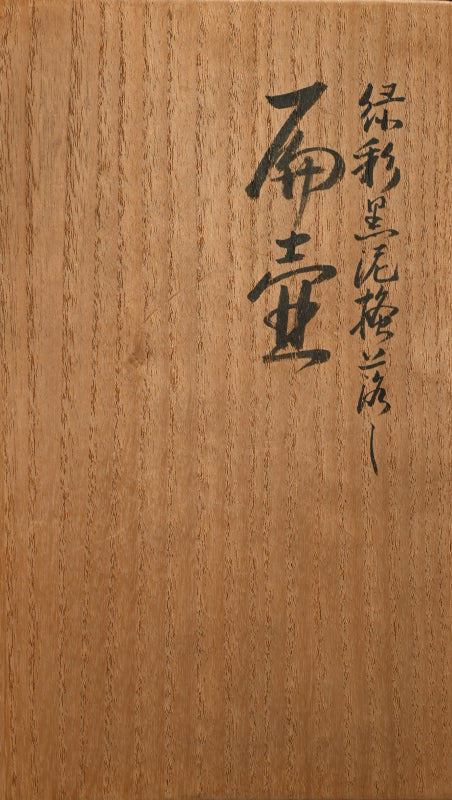 緑彩黒泥掻落し
扁壷